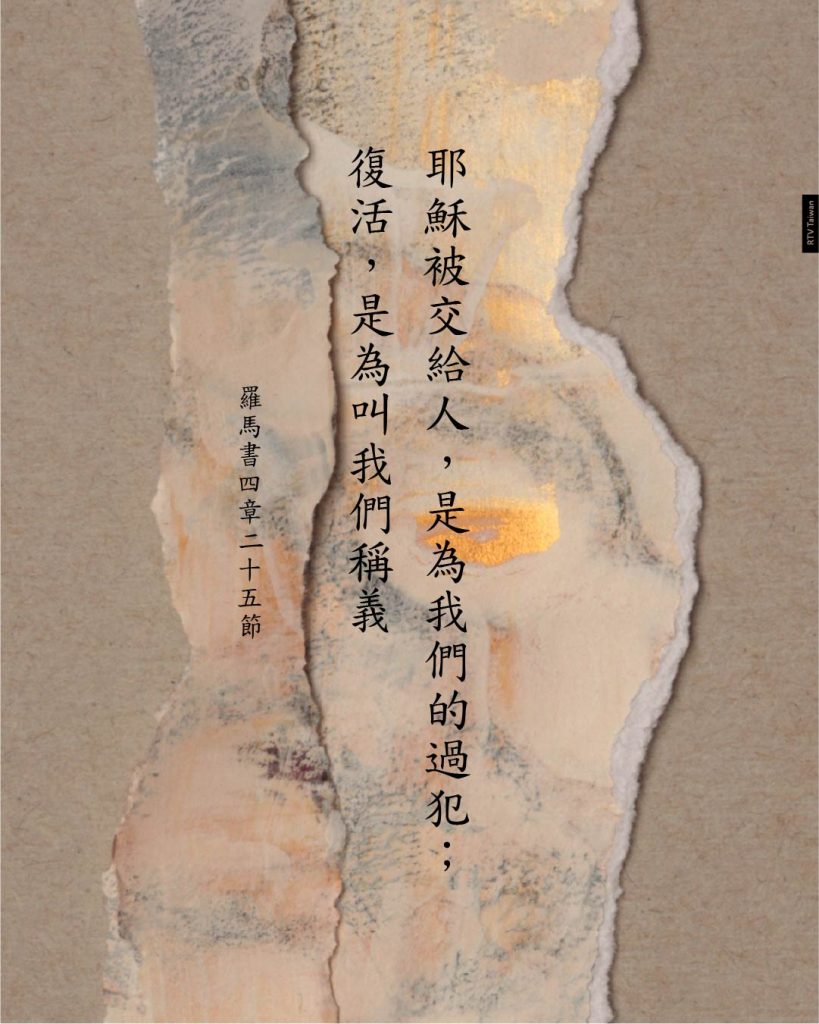 耶穌被交給人，是為我們的過犯；
復活，是為叫我們稱義
羅馬書四章二十五節
RTV Taiwan